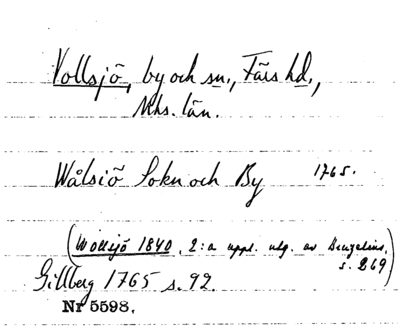 Vollsjö, by och sn., Färs hd.,
Mhs. län.
Wålsiö Sokn och By 1765.
(Wollsjö 1840, 2:a uppl. utg. av Bruzelius,
s. 269)
Gillberg 1765 s. 92.
Nr 5598.